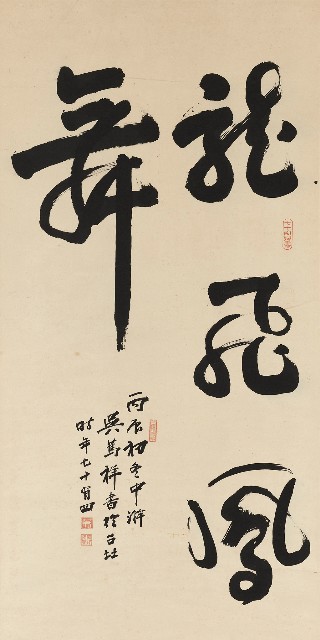 龍飛鳳
舞
丙辰初冬中澣
吳祥書於
時年七十有四